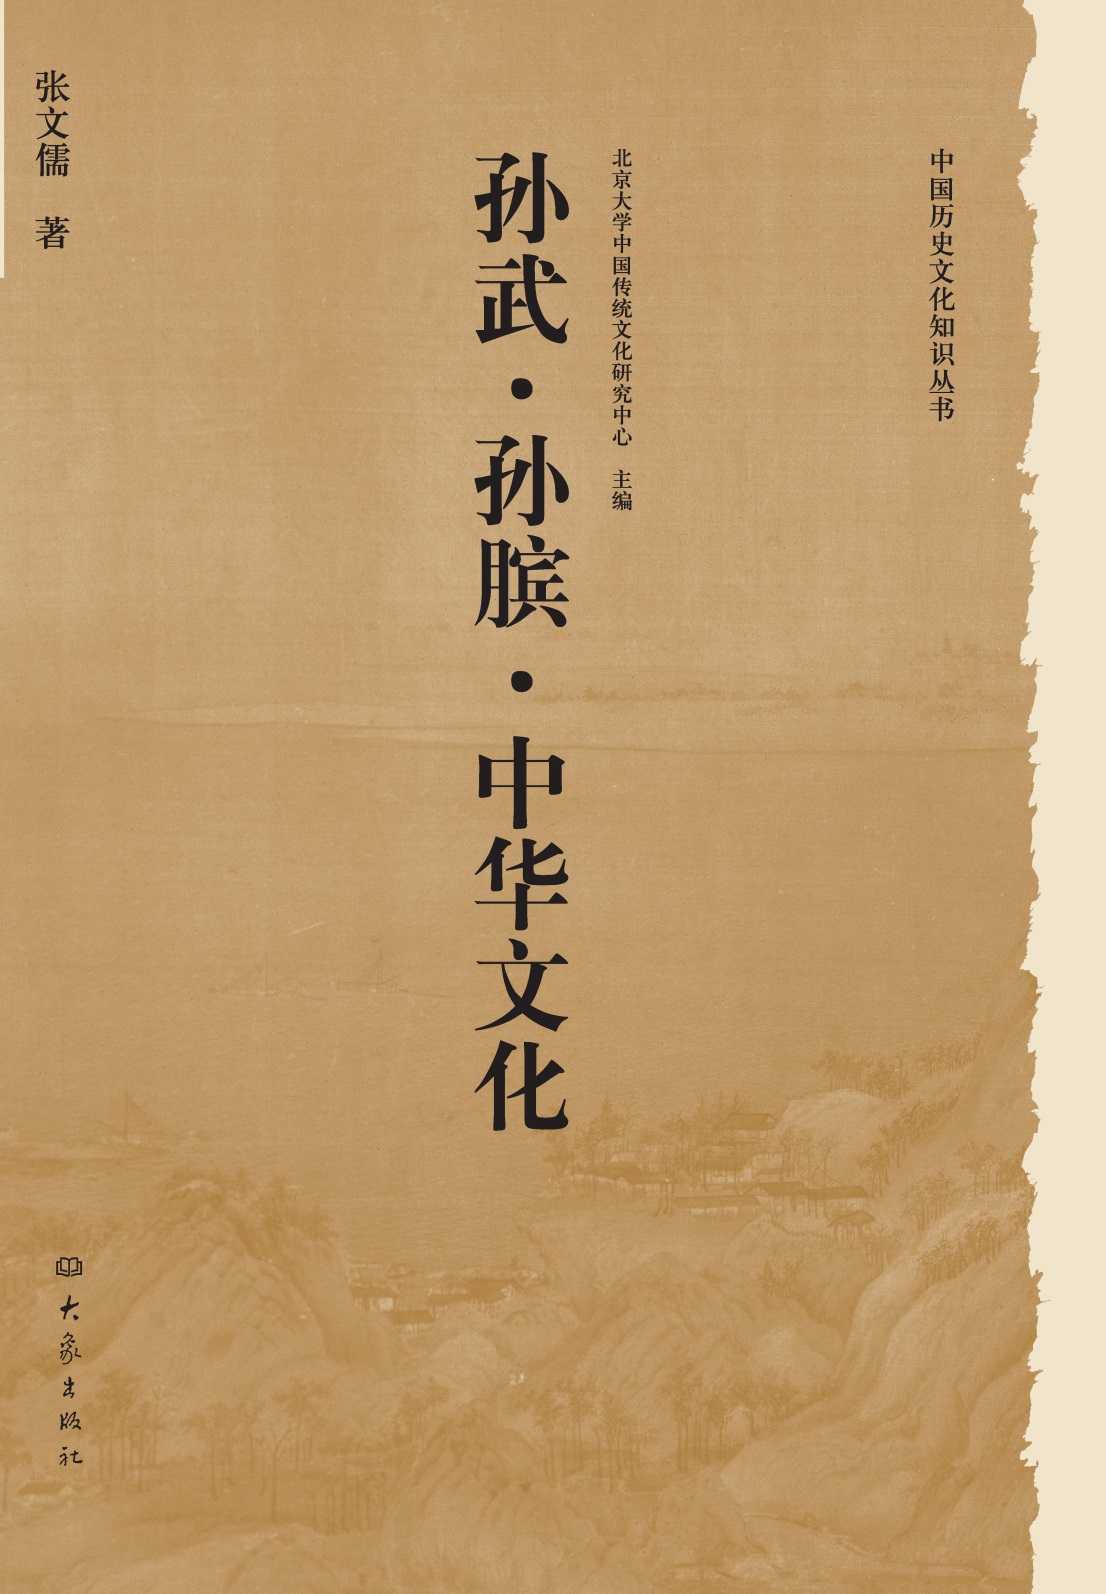 中国历史文化知识丛书
北京大学中国传统文化研究中心 主编
孙武·孙膑·中华文化
张文儒 著
大象出版社